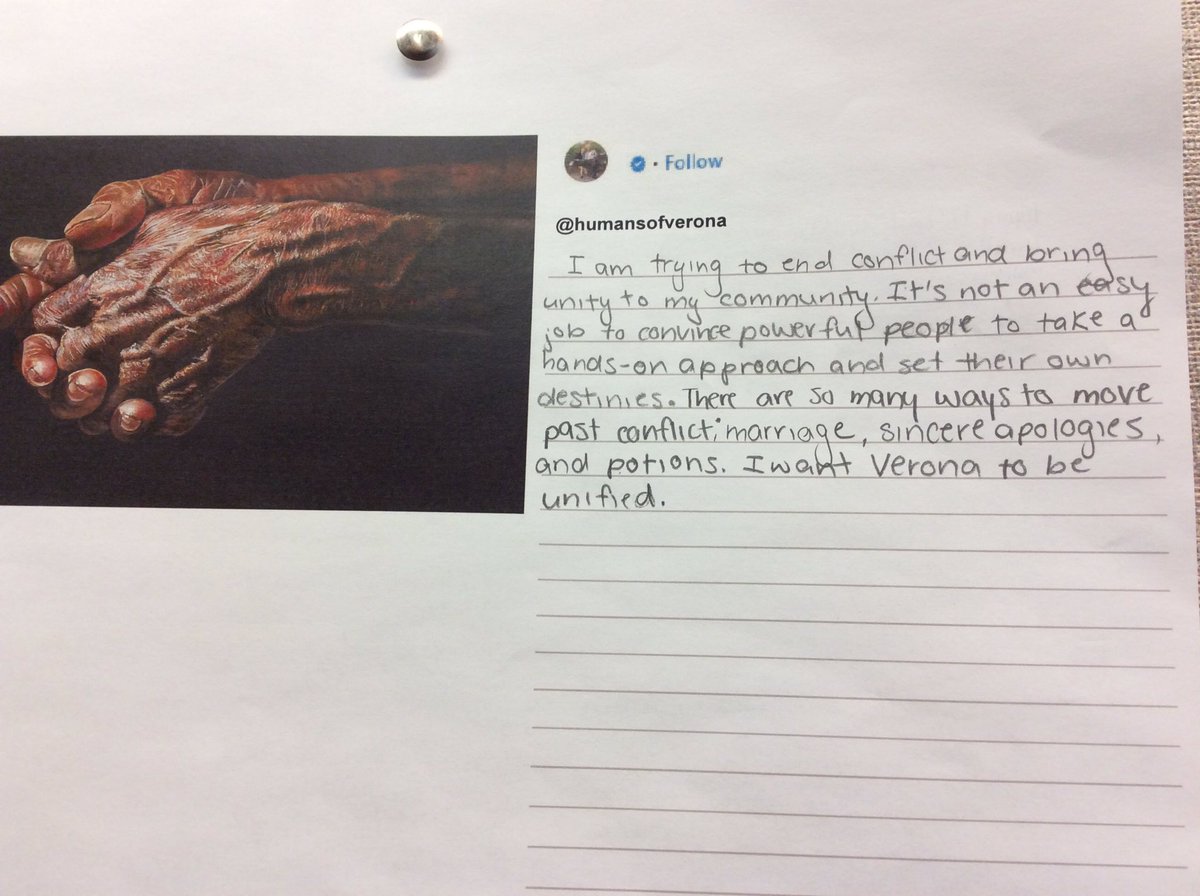 · Follow
@humansofverona
I am trying to end conflict and bring
unity to my community. It's not an easy
job to convince powerful people to take a
hands-on approach and set their own
destinies. There are so many ways to move
past conflict; marriage, sincere apologies,
and potions. I want Verona to be
unified.